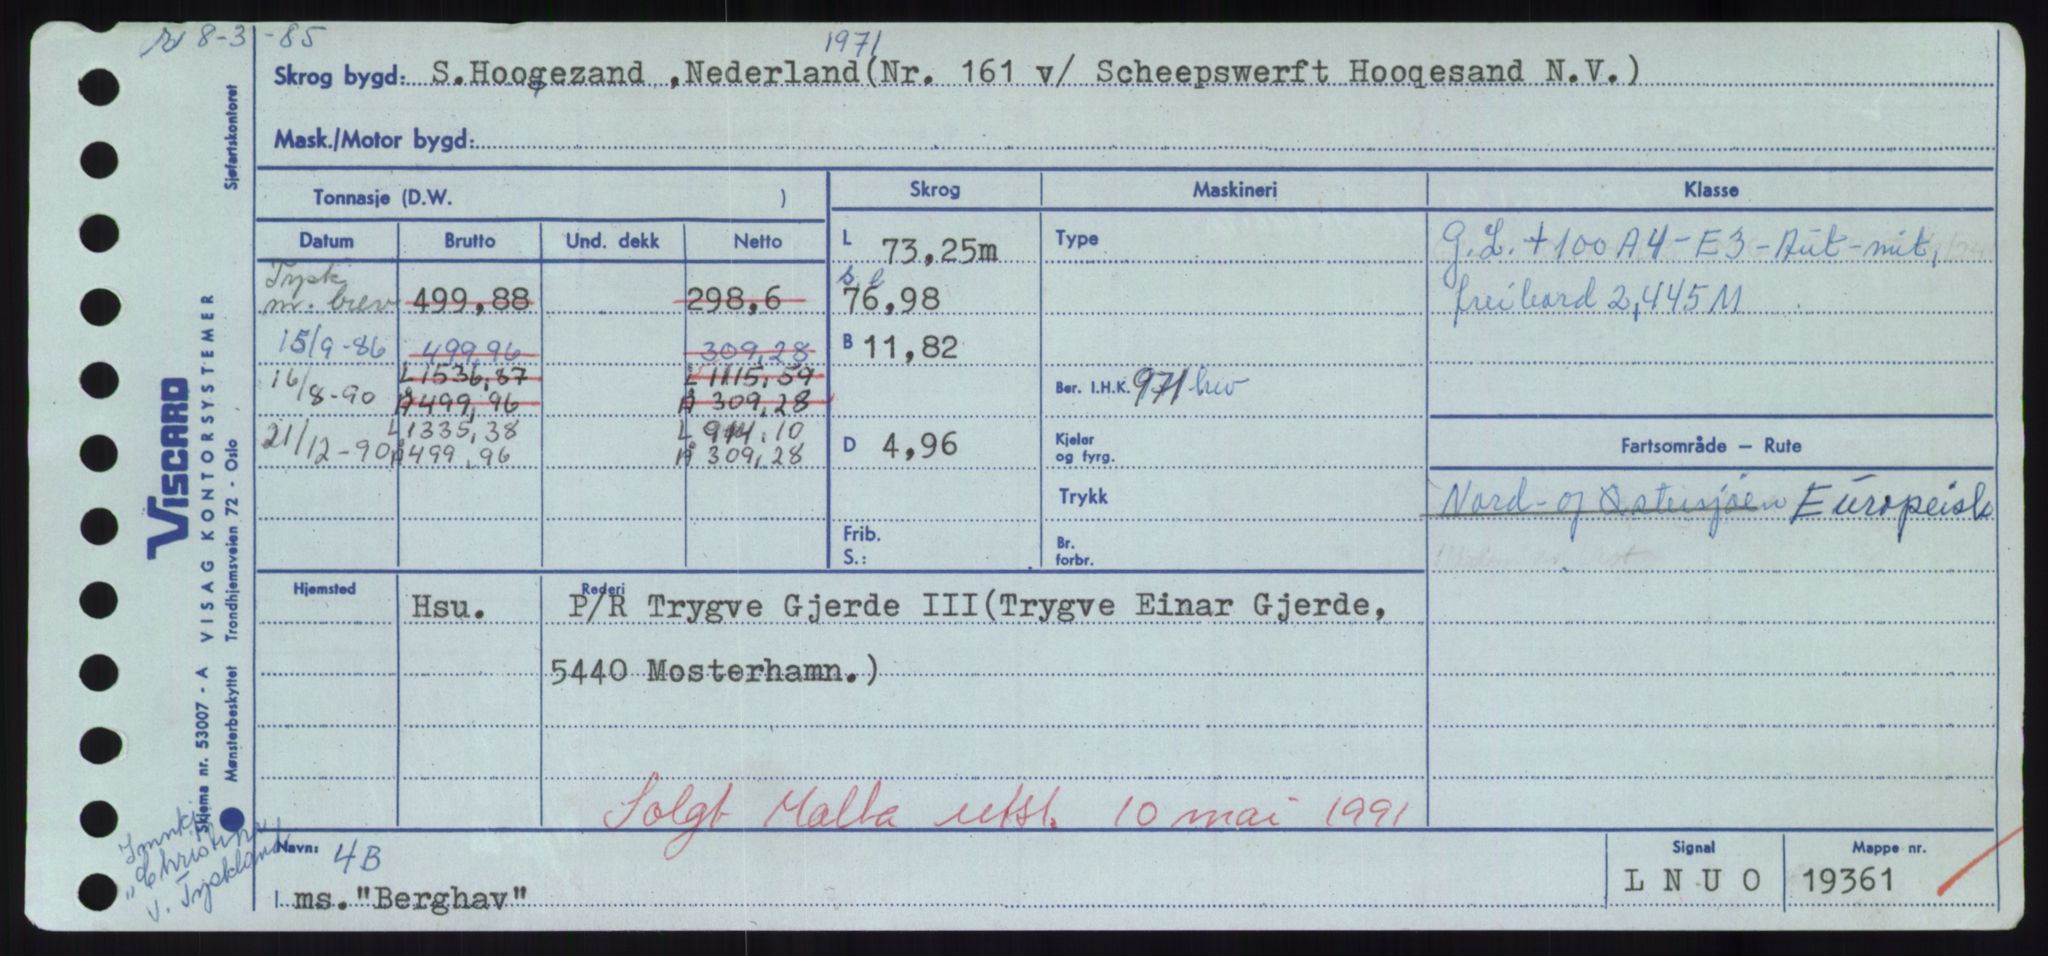 8-3-85
1971
Skrog bygd: S.Hoogezand ,Nederland(Nr. 161 v/ Scheepswerft Hoogesand N.V.)
Mask./Motor bygd:
Tonnasje (D.W. )
Skrog
Maskineri
Klasse
Datum Brutto Und. dekk Netto
L 73,25m
Type
G.L. + 100 A4 - E3 - Aut - mit,
Tysk
m. brev 499,88 298,6
76,98
freibord 2,445 M
15/9-86 499,96 309,28
B 11,82
16/8-90 L 1536,87 L 1115,59
Å 499,96 Å 309,28
Ber. I.H.K. 971 brev
21/12-90 L 1335,38 L 914,10
Å 499,96 Å 309,28
D 4,96
Kjeler
og fyrg.
Fartsområde — Rute
Trykk
Nord- og Østersjøen Europeisk
Frib.
S.:
Br.
forbr.
Hjemsted Hsu.
Rederi
P/R Trygve Gjerde III(Trygve Einar Gjerde,
5440 Mosterhamn.)
Solgt Malta utsl. 10 mai 1991
Navn: 4B
ms. "Berghav"
Signal
L N U O
Mappe nr.
19361
VISCARD
VISAG KONTORSYSTEMER
Skjema nr. 53007 - A
Mønsterbeskyttet
Trondhjemsveien 72 - Oslo
Sjøfartskontoret
Innkj.
"Christina"
v. Tyskland